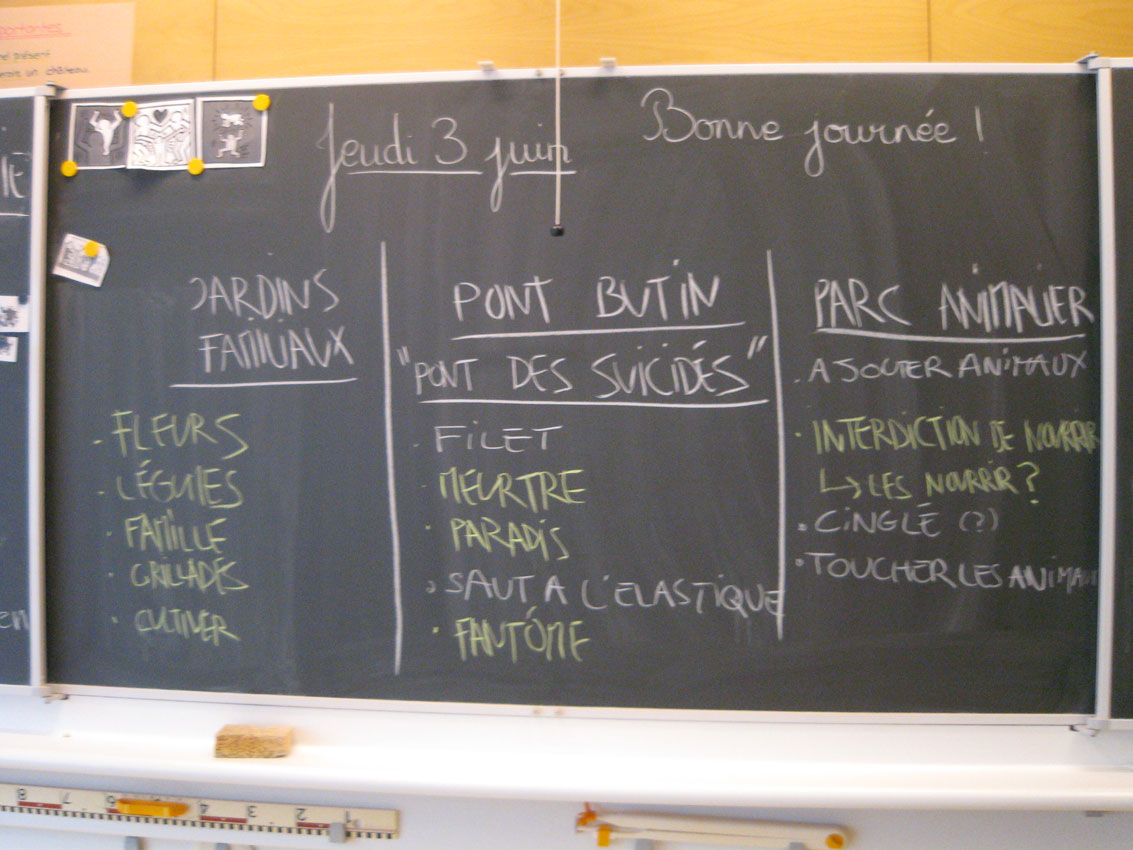 portantes
présent
un château.
Jeudi 3 juin
Bonne journée !
JARDINS
FAMILIAUX
· FLEURS
· LÉGUMES
· FAMILLE
· GRILLADES
· CULTIVER
PONT BUTIN
"PONT DES SUICIDÉS"
· FILET
· MEURTRE
· PARADIS
· SAUT A L'ELASTIQUE
· FANTÔME
PARC ANIMALIER
· AJOUTER ANIMAUX
· INTERDICTION DE NOURRIR
↳ LES NOURRIR ?
· CINGLÉ (?)
· TOUCHER LES ANIMAUX
en
8 7 6 4 3 2 1